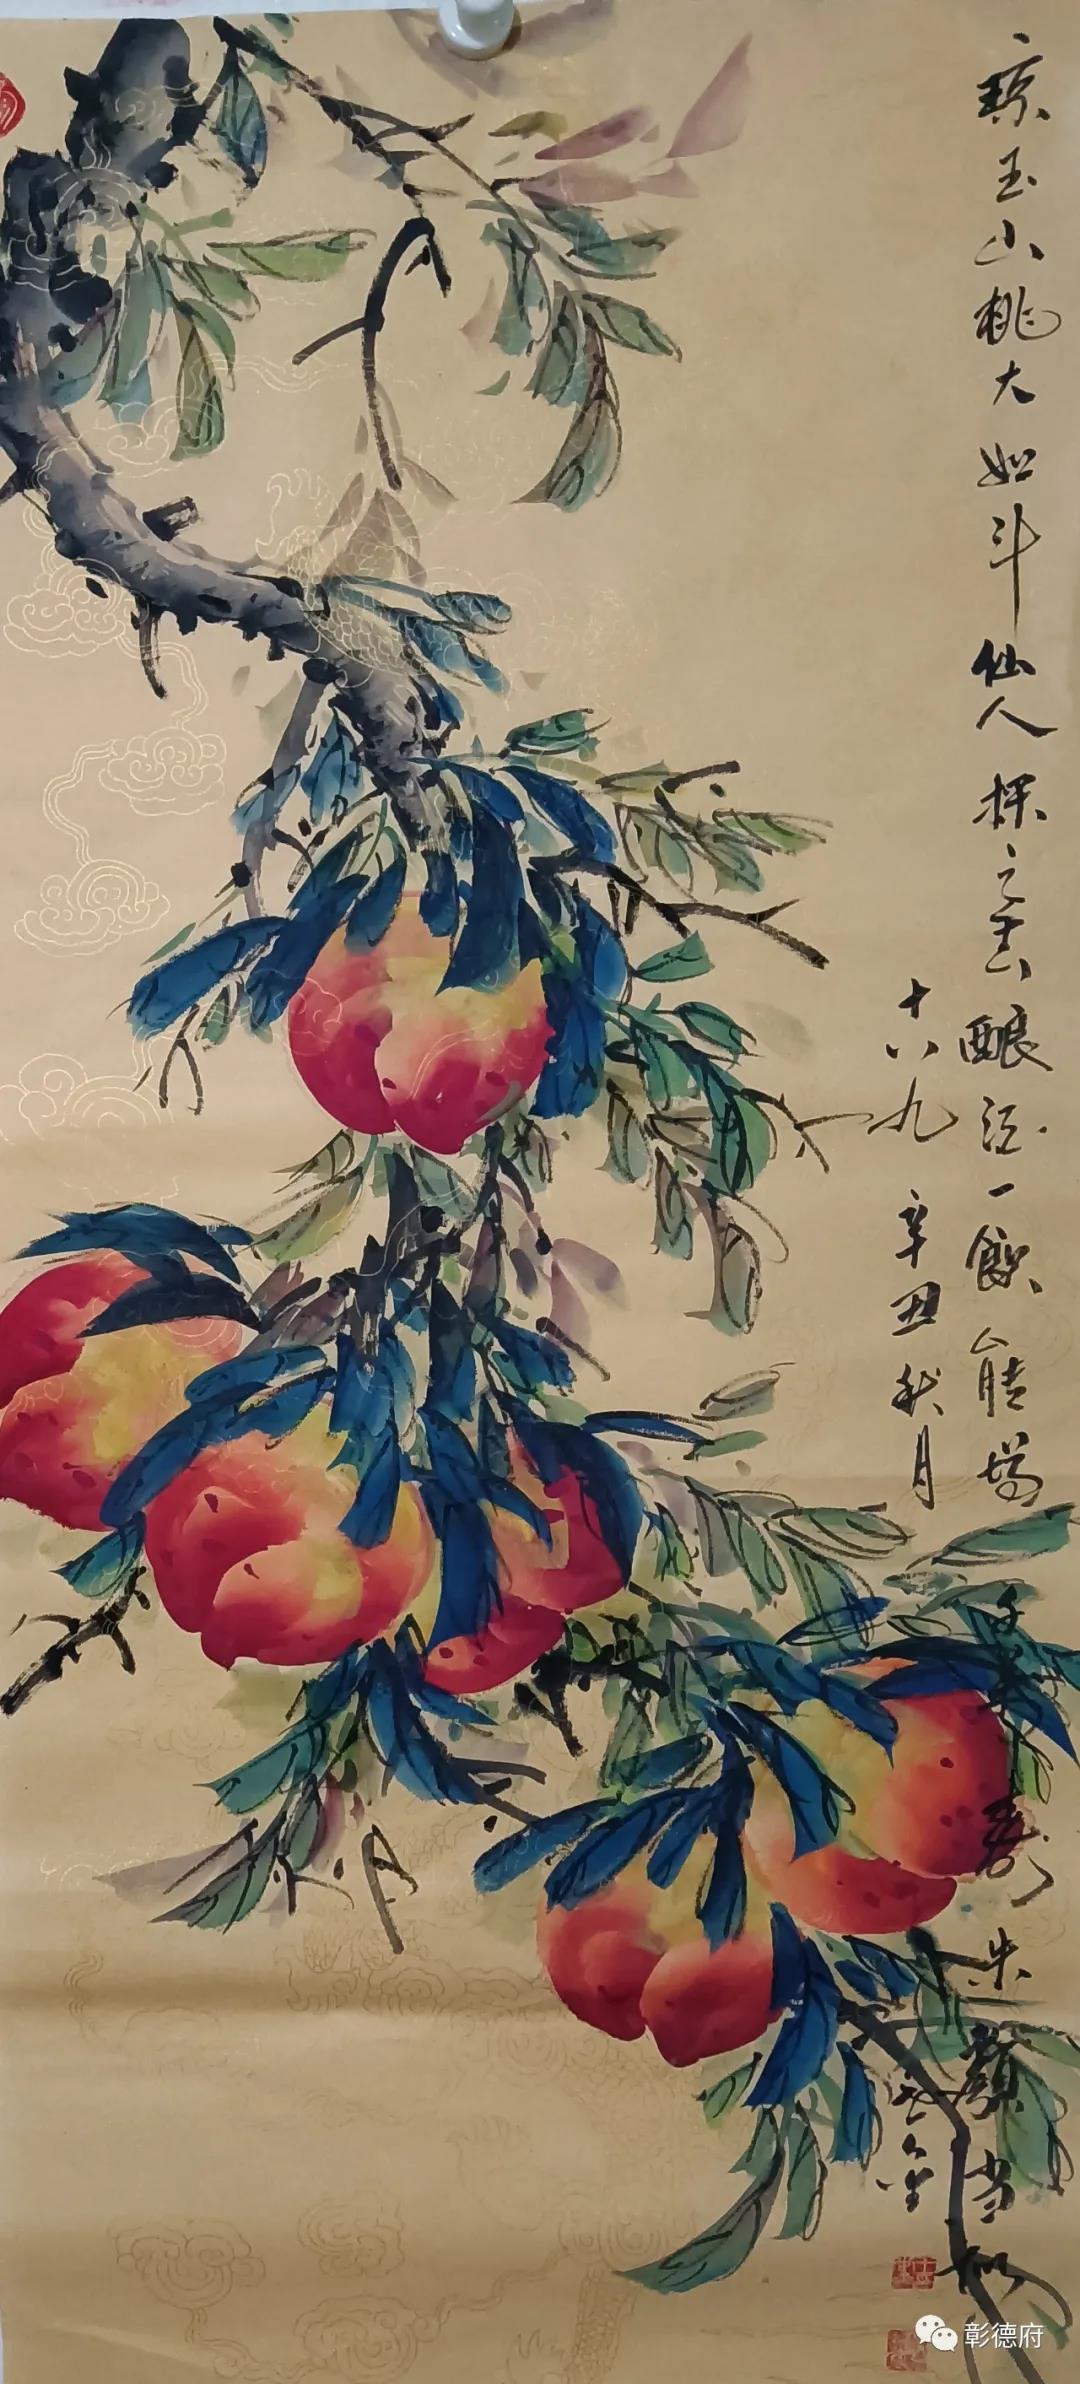 琼玉山桃大如斗仙人採之去酿酒一飲能增千年寿朱顔当如
十八九 辛丑秋月
彰德府